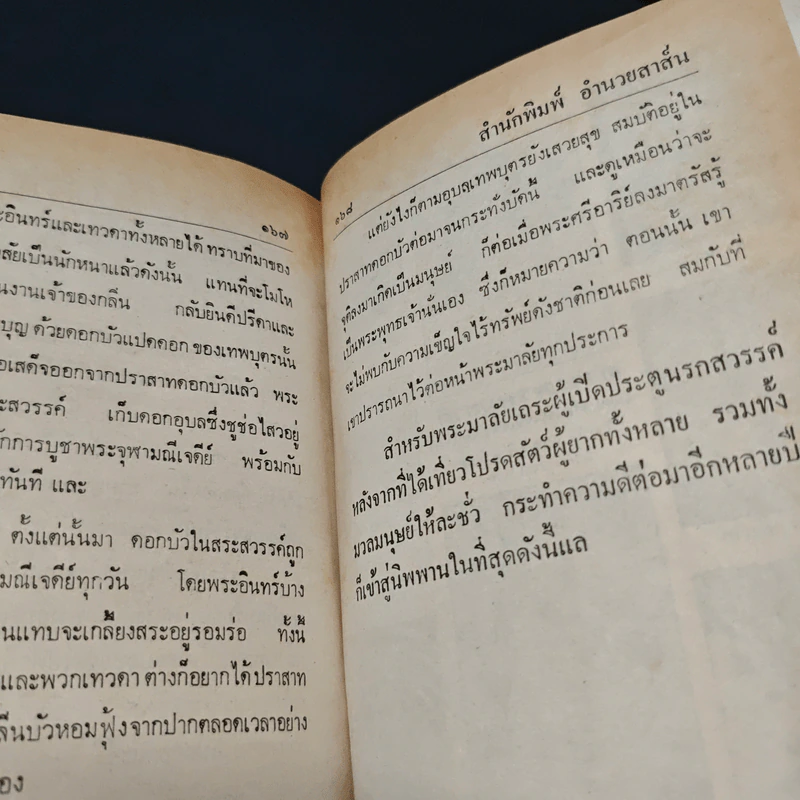 ๑๖๗
ะอินทร์และเทวดาทั้งหลายได้ ทราบที่มาของ
สัยเป็นนักหนาแล้วดังนั้น แทนที่จะโมโห
นงานเจ้าของกลิ่น กลับยินดีปรีดาและ
บุญ ด้วยดอกบัวแปดดอก ของเทพบุตรนั้น
อเสด็จออกจากปราสาทดอกบัวแล้ว พระ
ะสวรรค์ เก็บดอกอุบลซึ่งชูช่อไสวอยู่
ักการบูชาพระจุฬามณีเจดีย์ พร้อมกับ
ทันที และ
ตั้งแต่นั้นมา ดอกบัวในสระสวรรค์ถูก
มณีเจดีย์ทุกวัน โดยพระอินทร์บ้าง
นแทบจะเกลี้ยงสระอยู่รอมร่อ ทั้งนี้
และพวกเทวดา ต่างก็อยากได้ปราสาท
ลิ่นบัวหอมฟุ้งจากปากตลอดเวลาอย่าง
อง
สำนักพิมพ์ อำนวยสาส์น
๑๖๘
แต่ยังไงก็ตามอุบลเทพบุตรยังเสวยสุข สมบัติอยู่ใน
ปราสาทดอกบัวต่อมาจนกระทั่งบัดนี้ และดูเหมือนว่าจะ
จุติลงมาเกิดเป็นมนุษย์ ก็ต่อเมื่อพระศรีอาริย์ลงมาตรัสรู้
เป็นพระพุทธเจ้านั่นเอง ซึ่งก็หมายความว่า ตอนนั้น เขา
จะไม่พบกับความเข็ญใจไร้ทรัพย์ดังชาติก่อนเลย สมกับที่
เขาปรารถนาไว้ต่อหน้าพระมาลัยทุกประการ
สำหรับพระมาลัยเถระผู้เปิดประตูนรกสวรรค์
หลังจากที่ได้เที่ยวโปรดสัตว์ผู้ยากทั้งหลาย รวมทั้ง
มวลมนุษย์ให้ละชั่ว กระทำความดีต่อมาอีกหลายปี
ก็เข้าสู่นิพพานในที่สุดดังนี้แล